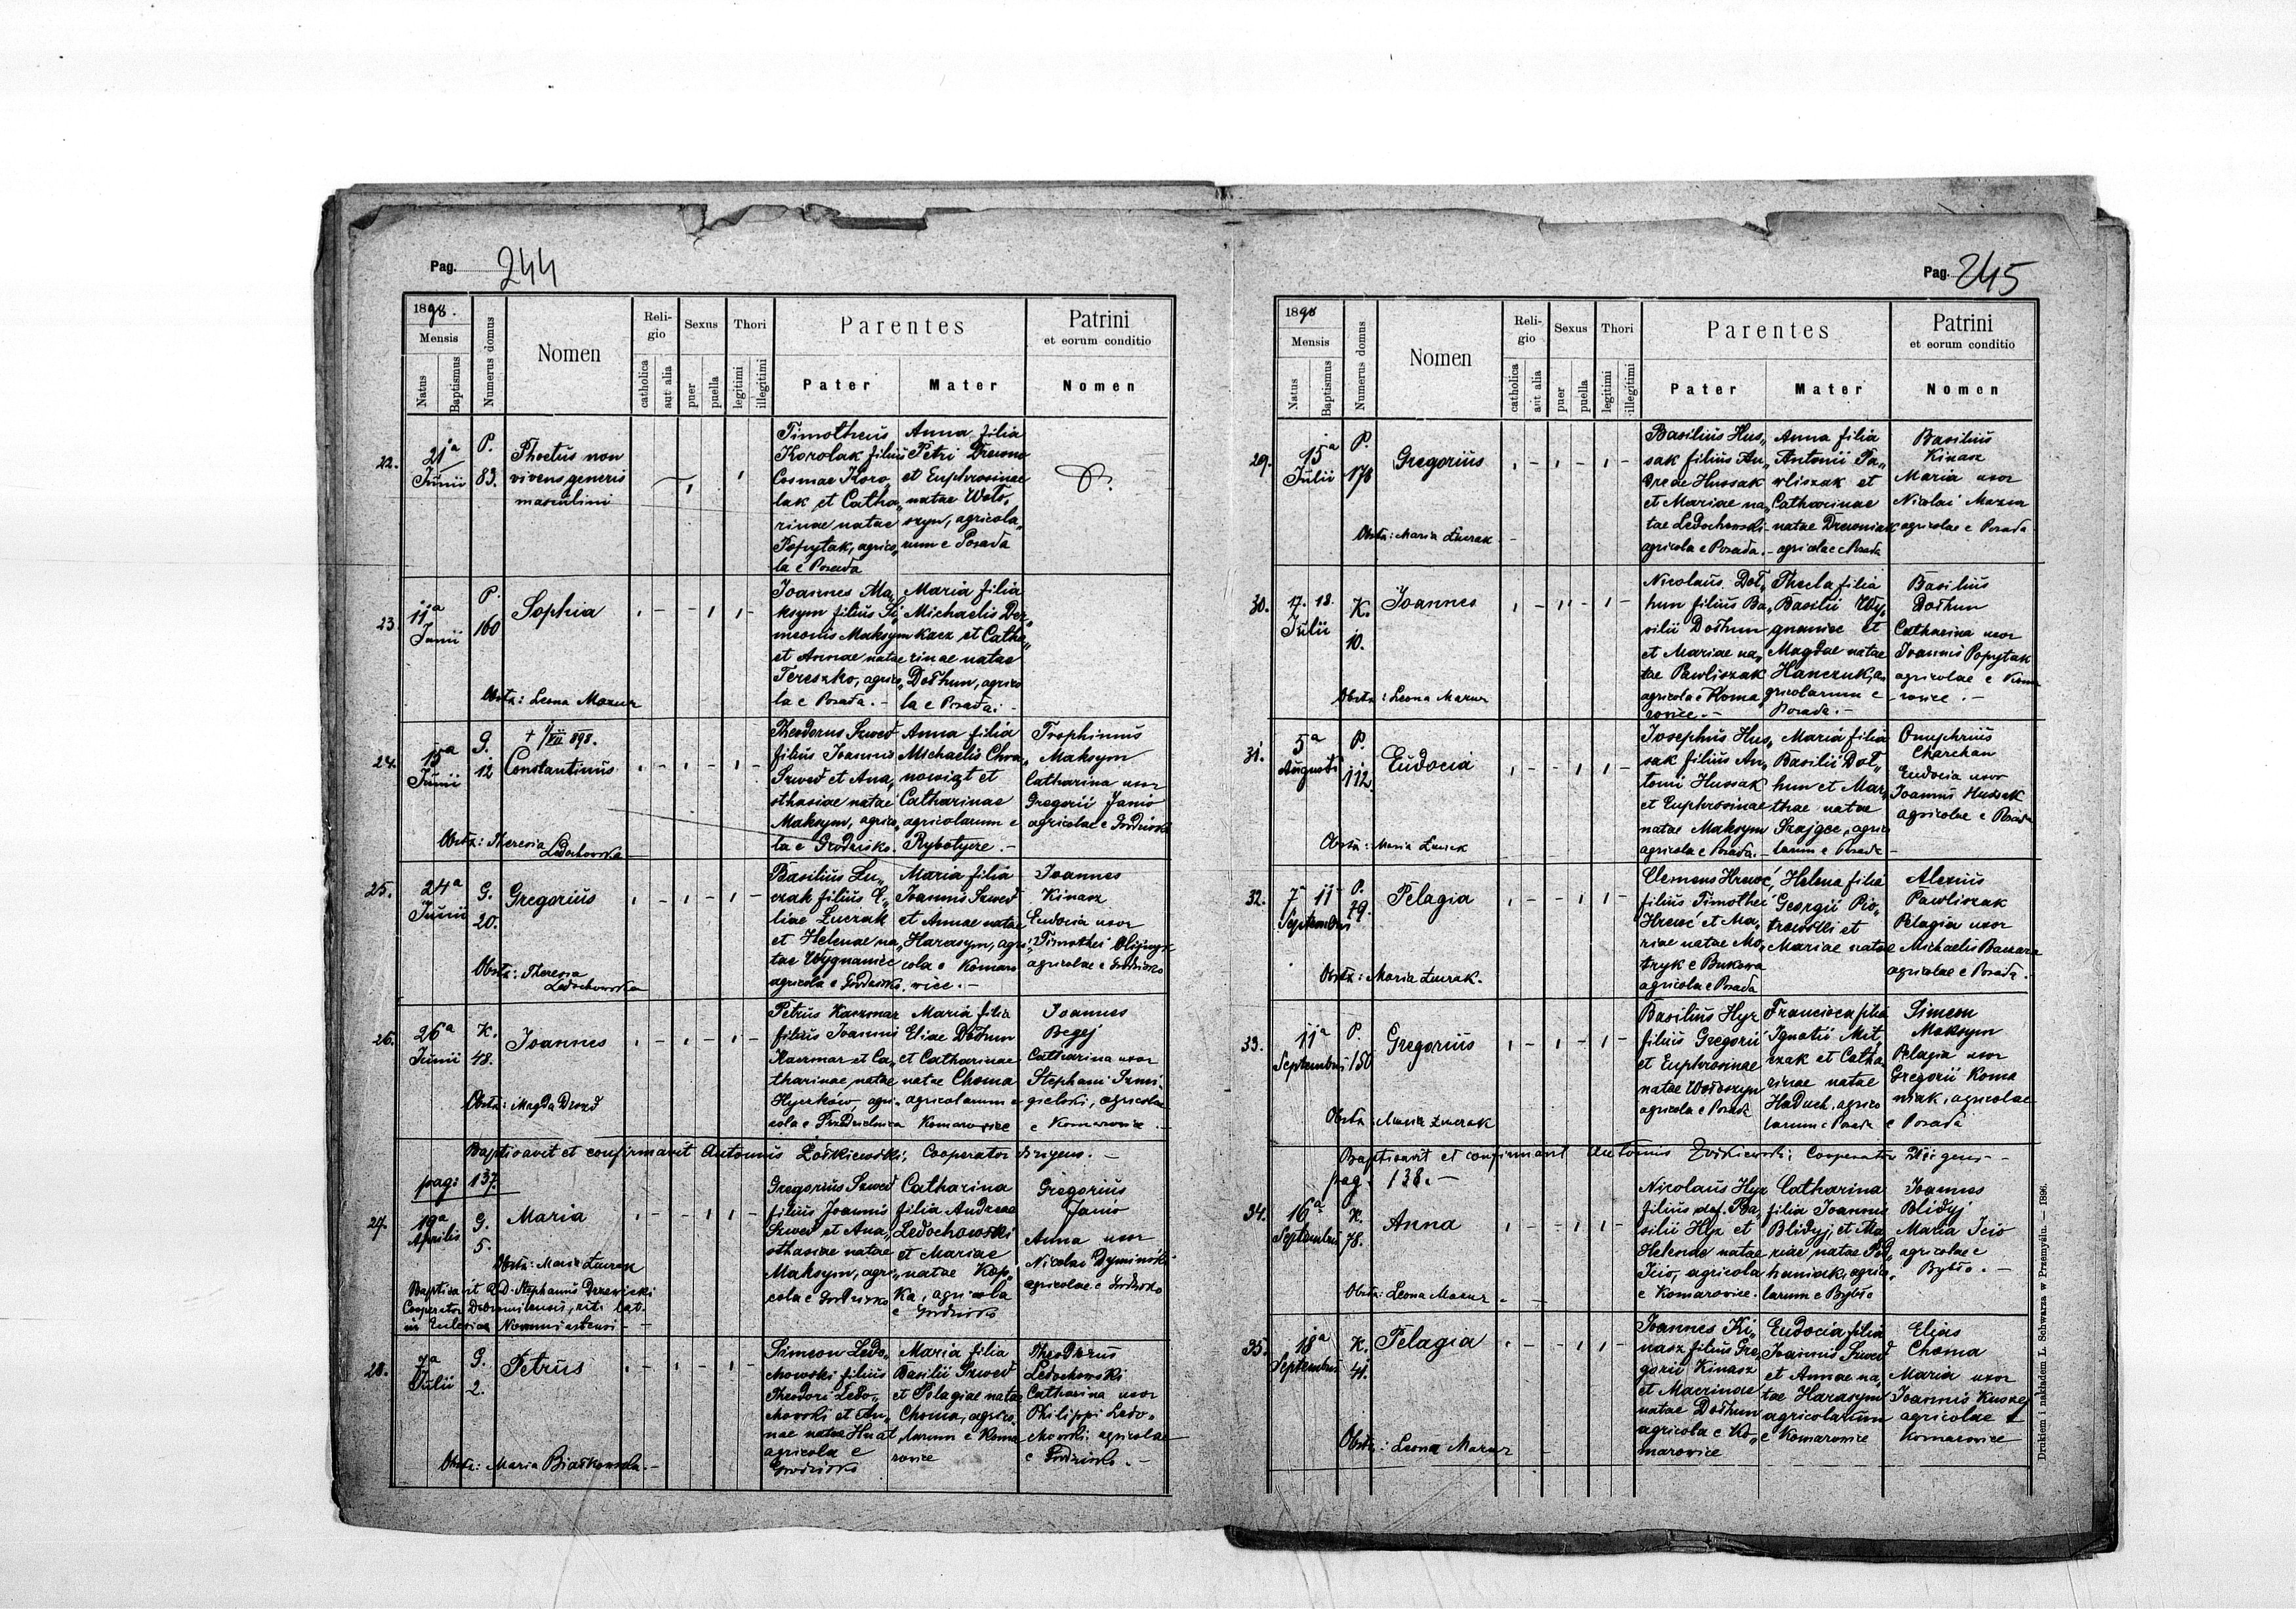 Pag. 244
1898.
Mensis
Natus
Baptismus
Numerus domus
Nomen
Religio
catholica
aut alia
Sexus
puer
puella
Thori
legitimi
illegitimi
Parentes
Pater
Mater
Patrini
et eorum conditio
Nomen
22.
21a
Junii
P.
83.
Phoetus non
vivens generis
masculini
Timotheus
Korolak filius
Cosmae Koro„
lak et Catha„
rinae natae
Popytak, agrico„
la e Posada
Anna filia
Petri Drewno
et Euphrosinae
natae Woło„
szyn, agricola„
rum e Posada
23.
11a
Junii
P.
160
Sophia
Obstx: Leona Mazur
Joannes Ma„
ksym filius Si„
meonis Maksym
et Annae natae
Tereszko, agrico„
la e Posada. -
Maria filia
Michaelis Der„
kacz et Catha„
rinae natae
Dodhun, agrico
la e Posada. -
24.
15a
Junii
G.
12
+ 1/VII 898.
Constantinus
Obstx: Theresia
Ledochowska
Theodorus Szwed
filius Joannis
Szwed et Ana„
sthasiae natae
Maksym, agrico„
la e Grodzisko.
Anna filia
Michaelis Chra„
nowizt et
Catharinae
agricolarum e
Rybotycze. -
Trophimus
Maksym
Catharina uxor
Gregorii Janio
agricolae e Grodzisko
25.
24a
Junii
G.
20.
Gregorius
Obstx: Theresia
Ledochowska
Basilius Lu„
czak filius E„
liae Luczak
et Helenae na„
tae Wygnaniec
agricola e Grodzisko.
Maria filia
Joannis Szwed
et Annae natae
Harasym, agri„
cola e Komaro
wice. -
Joannes
Kinasz
Eudocia uxor
Timothei Olijnyk
agricolae e Grodzisko
26.
26a
Junii
K.
48.
Joannes
Obstx: Magda Drozd
Petrus Kaczmar
filius Joannis
Kaczmar et Ca„
tharinae natae
Hyczków, agri„
cola e Przedzielnica
Maria filia
Eliae Dodhun
et Catharinae
natae Choma
agricolarum e
Komarowice
Joannes
Begej
Catharina uxor
Stephani Szmi„
gielski, agricolae
e Komarowice
Baptisavit et confirmavit Antonius Żołkiewski, Cooperator dirigens. -
pag: 137.
27.
19a
Aprilis
G.
5.
Maria
Obstx: Maria Łuczak
Baptisavit R.D. Stephanus Drzewicki
Cooperator Dobromilensis, rit. lat.
in Ecclesia Novomiastensi -
Gregorius Szwed
filius Joannis
Szwed et Ana„
sthasiae natae
Maksym, agri„
cola e Grodzisko
Catharina
filia Andreae
Ledochowski
et Mariae
natae Kop„
ka, agricola
e Grodzisko
Gregorius
Janio
Anna uxor
Nicolai Dyminski
agricolae e Grodzisko
28.
7a
Julii
G.
2.
Petrus
Obstx: Maria Białkowska. -
Simeon Ledo„
chowski filius
Theodori Ledo„
chowski et An„
nae natae Hnat
agricola e
Grodzisko
Maria filia
Basilii Szwed
et Pelagiae natae
Choma, agrico„
larum e Koma
rowice
Theodorus
Ledochowski
Catharina uxor
Philippi Ledo„
chowski agricolae
e Grodzisko. -
Pag. 245
1898
Mensis
Natus
Baptismus
Numerus domus
Nomen
Religio
catholica
aut alia
Sexus
puer
puella
Thori
legitimi
illegitimi
Parentes
Pater
Mater
Patrini
et eorum conditio
Nomen
29.
15a
Julii
P.
178
Gregorius
Obstx: Maria Łuczak
Basilius Hus„
sak filius An„
dreae Hussak
et Mariae na„
tae Ledochowski
agricola e Posada. -
Anna filia
Antonii Pa„
wliszak et
Catharinae
natae Drewniak
agricolae e Posada
Basilius
Kinasz
Maria uxor
Nicolai Mazur
agricolae e Posada
30.
17. 18.
Julii
K.
10.
Joannes
Obstx: Leona Mazur
Nicolaus Dod„
hun filius Ba„
silii Dodhun
et Mariae na„
tae Pawliszak
agricola e Koma
rowice. -
Thecla filia
Basilii Wy„
gnaniec et
Magdae natae
Hanczuk, a
gricolarum e
Posada. -
Basilius
Dodhun
Catharina uxor
Joannis Popytak
agricolae e Koma
rowice. -
31.
5a
Augusti
P.
112.
Eudocia
Obstx: Maria Łuczak
Josephus Hus„
sak filius An„
tonii Hussak
et Euphrosinae
natae Maksym
agricola e Posada. -
Maria filia
Basilii Dod„
hun et Mar„
thae natae
Szajgec, agrico
larum e Posada -
Onuphrius
Charchan
Eudocia uxor
Joannis Hussak
agricolae e Posada
32.
7 11
Septembris
P.
79.
Pelagia
Obstx: Maria Łuczak.
Clemens Hrewć,
filius Timothei
Hrewć et Ma„
riae natae Mo„
tryk e Bukowa
agricola e Posada
Helena filia
Georgii Pio„
trowski et
Mariae natae
Alexius
Pawliszak
Pelagia uxor
Michaelis Baczara
agricolae e Posada.
33.
11a
Septembris
P.
150
Gregorius
Obstx: Maria Łuczak
Basilius Hyz
filius Gregorii
et Euphrosinae
natae Wołoszyn
agricola e Posada
Francisca filia
Ignatii Mit„
czak et Catha„
rinae natae
Haduch, agrico
larum e Posada
Simeon
Maksym
Pelagia uxor
Gregorii Koma
niak, agricolae
e Posada
Baptisavit et confirmavit Antonius Żołkiewski Cooperator dirigens -
pag. 138. -
34.
16a
Septembris
K.
78.
Anna
Obstx: Leona Mazur
Nicolaus Hyz
filius def. Ba„
silii Hyz et
Helenae natae
Icio, agricola
e Komarowice.
Catharina
filia Joannis
Blidyj, et Ma„
riae natae Pod„
haniak, agrico„
larum e Bybło
Joannes
Blidyj
Maria Icio
agricolae e
Bybło. -
35.
18a
Septembris
K.
41.
Pelagia
Obstx: Leona Mazur
Joannes Ki„
nasz filius Gre„
gorii Kinasz
et Macrinae
natae Dodhun
agricola e Ko„
marowice
Eudocia filia
Joannis Szwed
et Annae na„
tae Harasym
agricolarum
e Komarowice
Elias
Choma
Maria uxor
Joannis Kuszej
agricolae e
Komarowice
Drukiem i nakładem L. Schwarza w Przemyślu. — 1896.